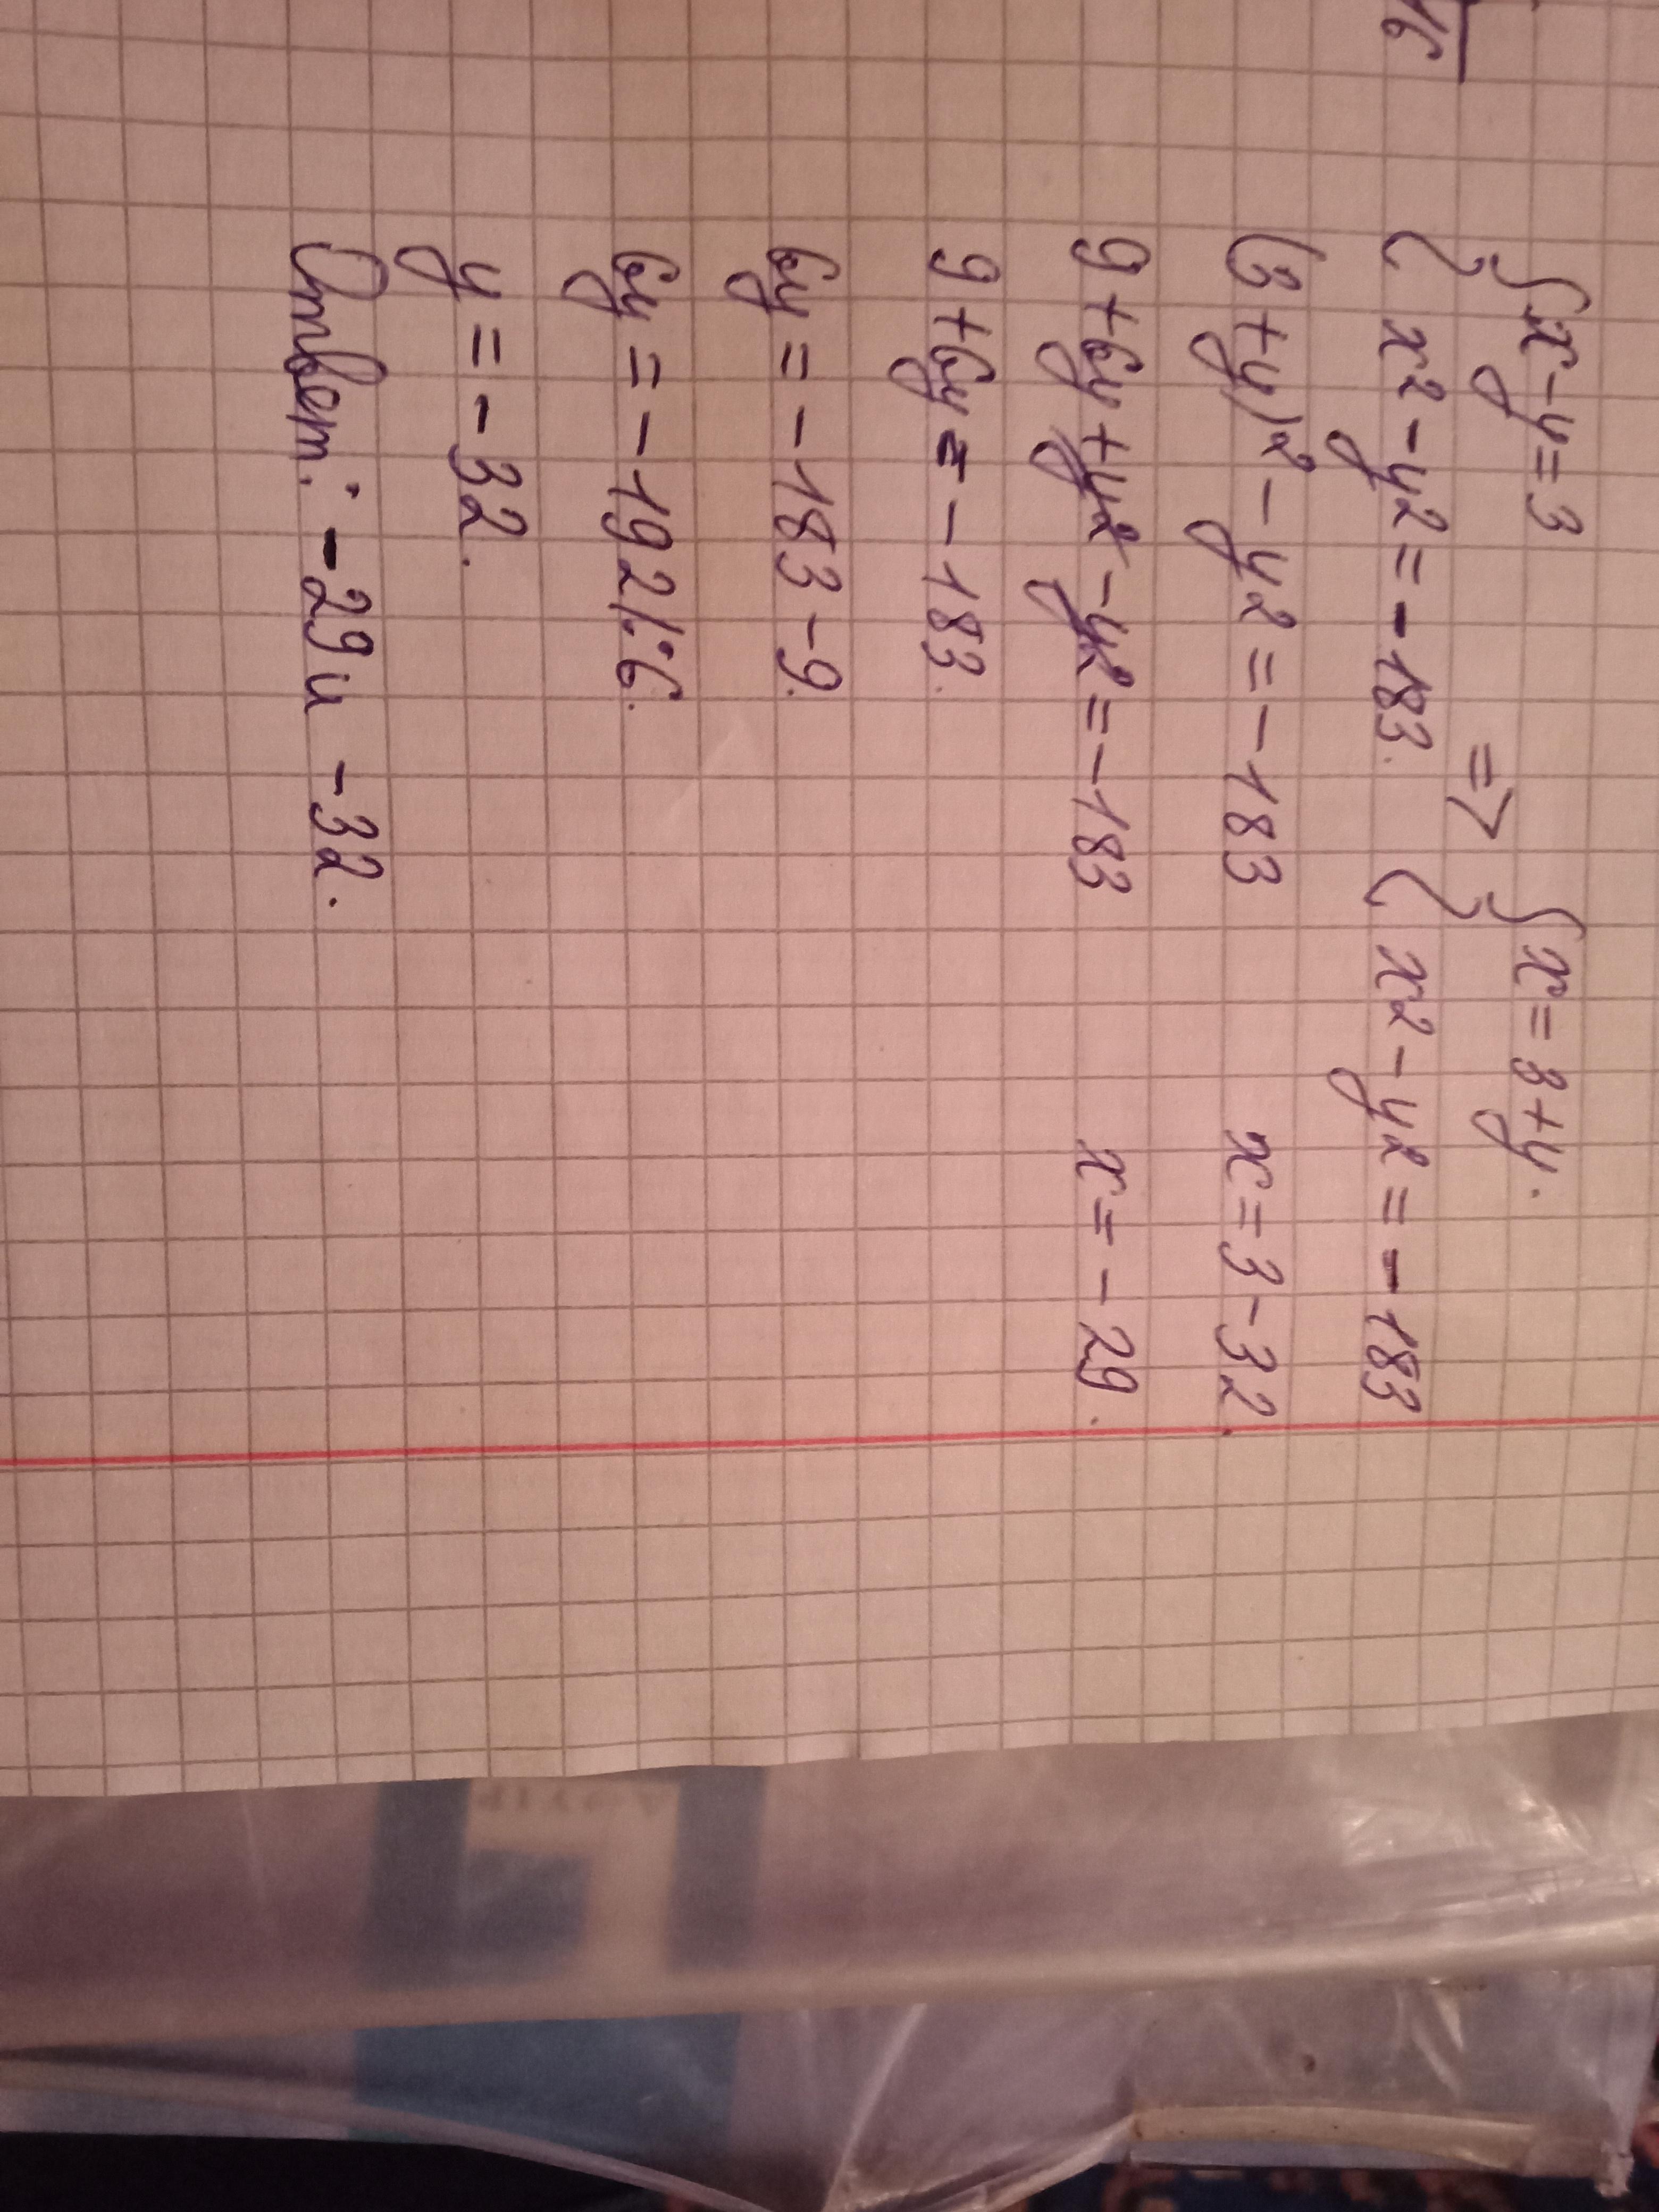 √6
{ x - y = 3 => { x = 3 + y.
x² - y² = - 183. x² - y² = - 183
(3 + y)² - y² = - 183 x = 3 - 32.
9 + 6y + y² - y² = - 183 x = - 29.
9 + 6y = - 183.
6y = - 183 - 9.
6y = - 192 | : 6.
y = - 32.
Ответ: - 29 и - 32.